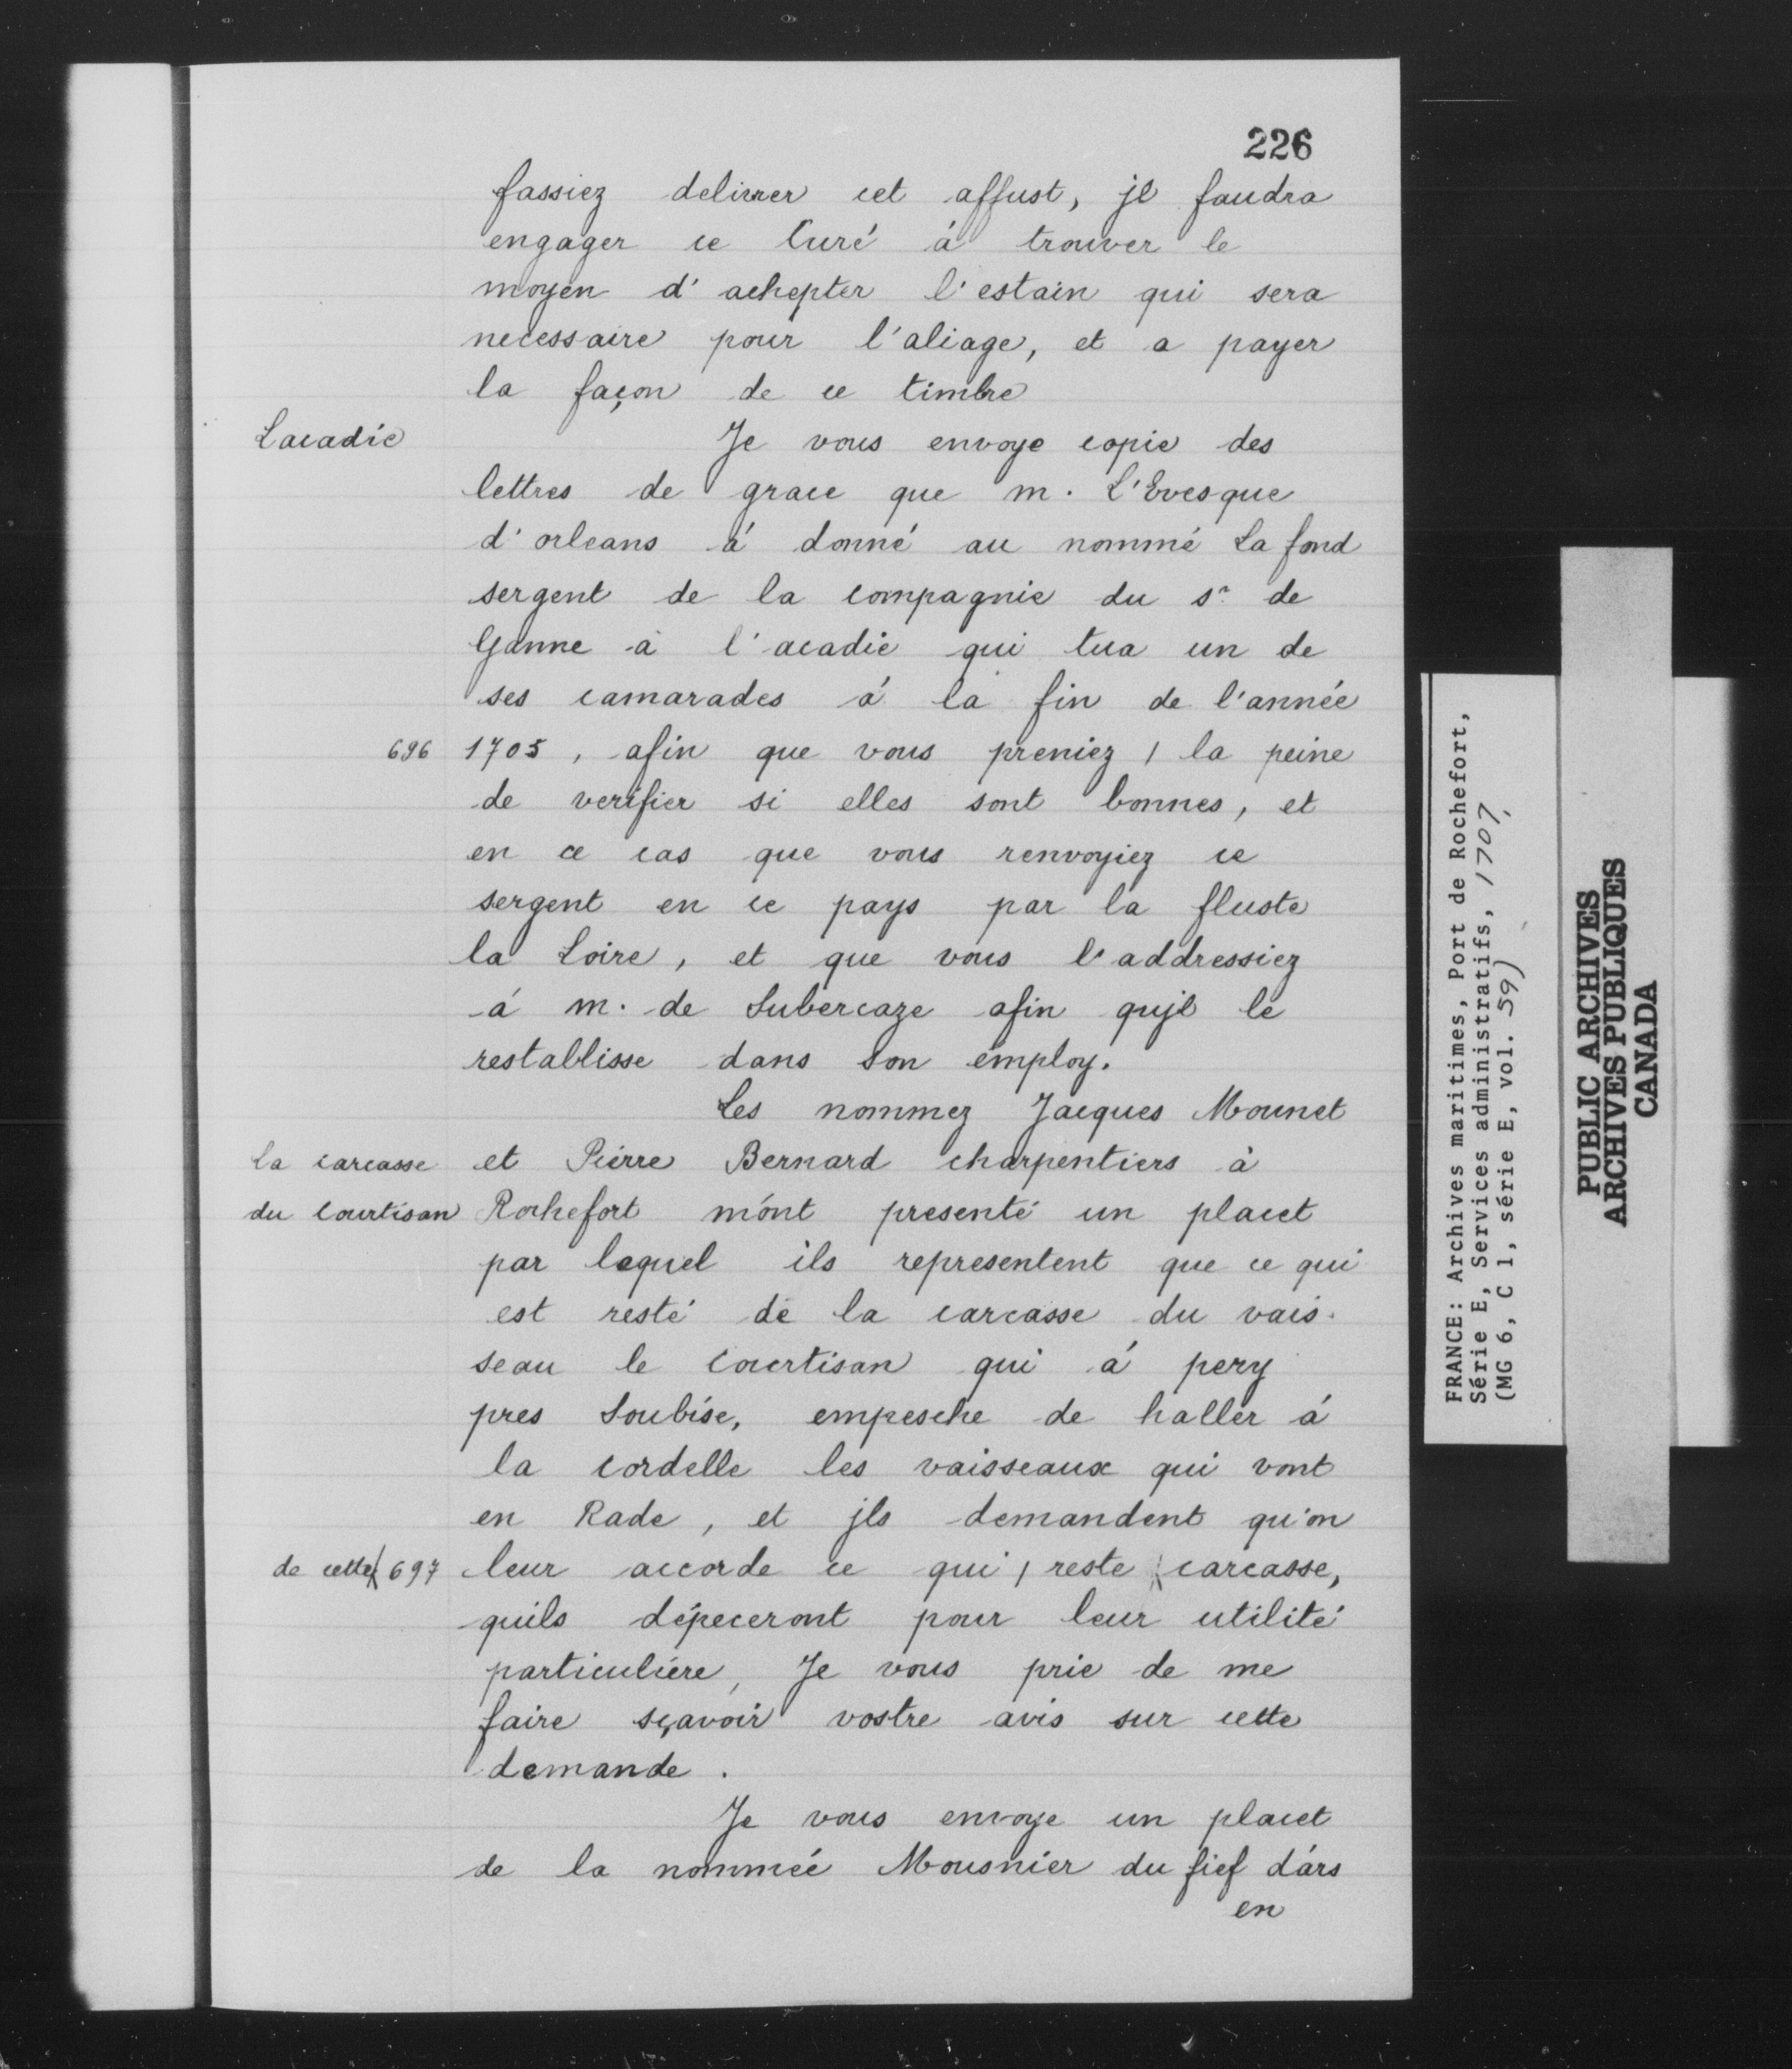 226
fassiez delivrer cet affust, jl faudra
engager ce Curé á trouver le
moyen d'achepter l'estain qui sera
necessaire pour l'aliage, et a payer
la façon de ce timbre
Lacadie
Je vous envoye copie des
lettres de grace que m. L'Evesque
d'orleans á donné au nommé La fond
sergent de la compagnie du sr. de
Ganne à l'acadie qui tua un de
ses camarades á la fin de l'année
696 1705, afin que vous preniez / la peine
de verifier si elles sont bonnes, et
en ce cas que vous renvoyiez ce
sergent en ce pays par la fluste
la Loire, et que vous l'addressiez
á m. de Subercaze afin qujl le
restablisse dans son employ.
Les nommez Jacques Mounet
la carcasse et Pierre Bernard charpentiers à
du Courtisan Rochefort m'ont presenté un placet
par lequel ils representent que ce qui
est resté de la carcasse du vais-
seau le Courtisan qui á pery
pres Soubise, empesche de haller á
la cordelle les vaisseaux qui vont
en Rade, et jls demandent qu'on
de cette X 697 leur accorde ce qui / reste X carcasse,
quils dépeceront pour leur utilité
particuliére, Je vous prie de me
faire sçavoir vostre avis sur cette
demande.
Je vous envoye un placet
de la nommée Mousnier du fief d'ars
en
FRANCE: Archives maritimes, Port de Rochefort,
Série E, Services administratifs, 1707,
(MG 6, C 1, série E, vol. 59)
PUBLIC ARCHIVES
ARCHIVES PUBLIQUES
CANADA